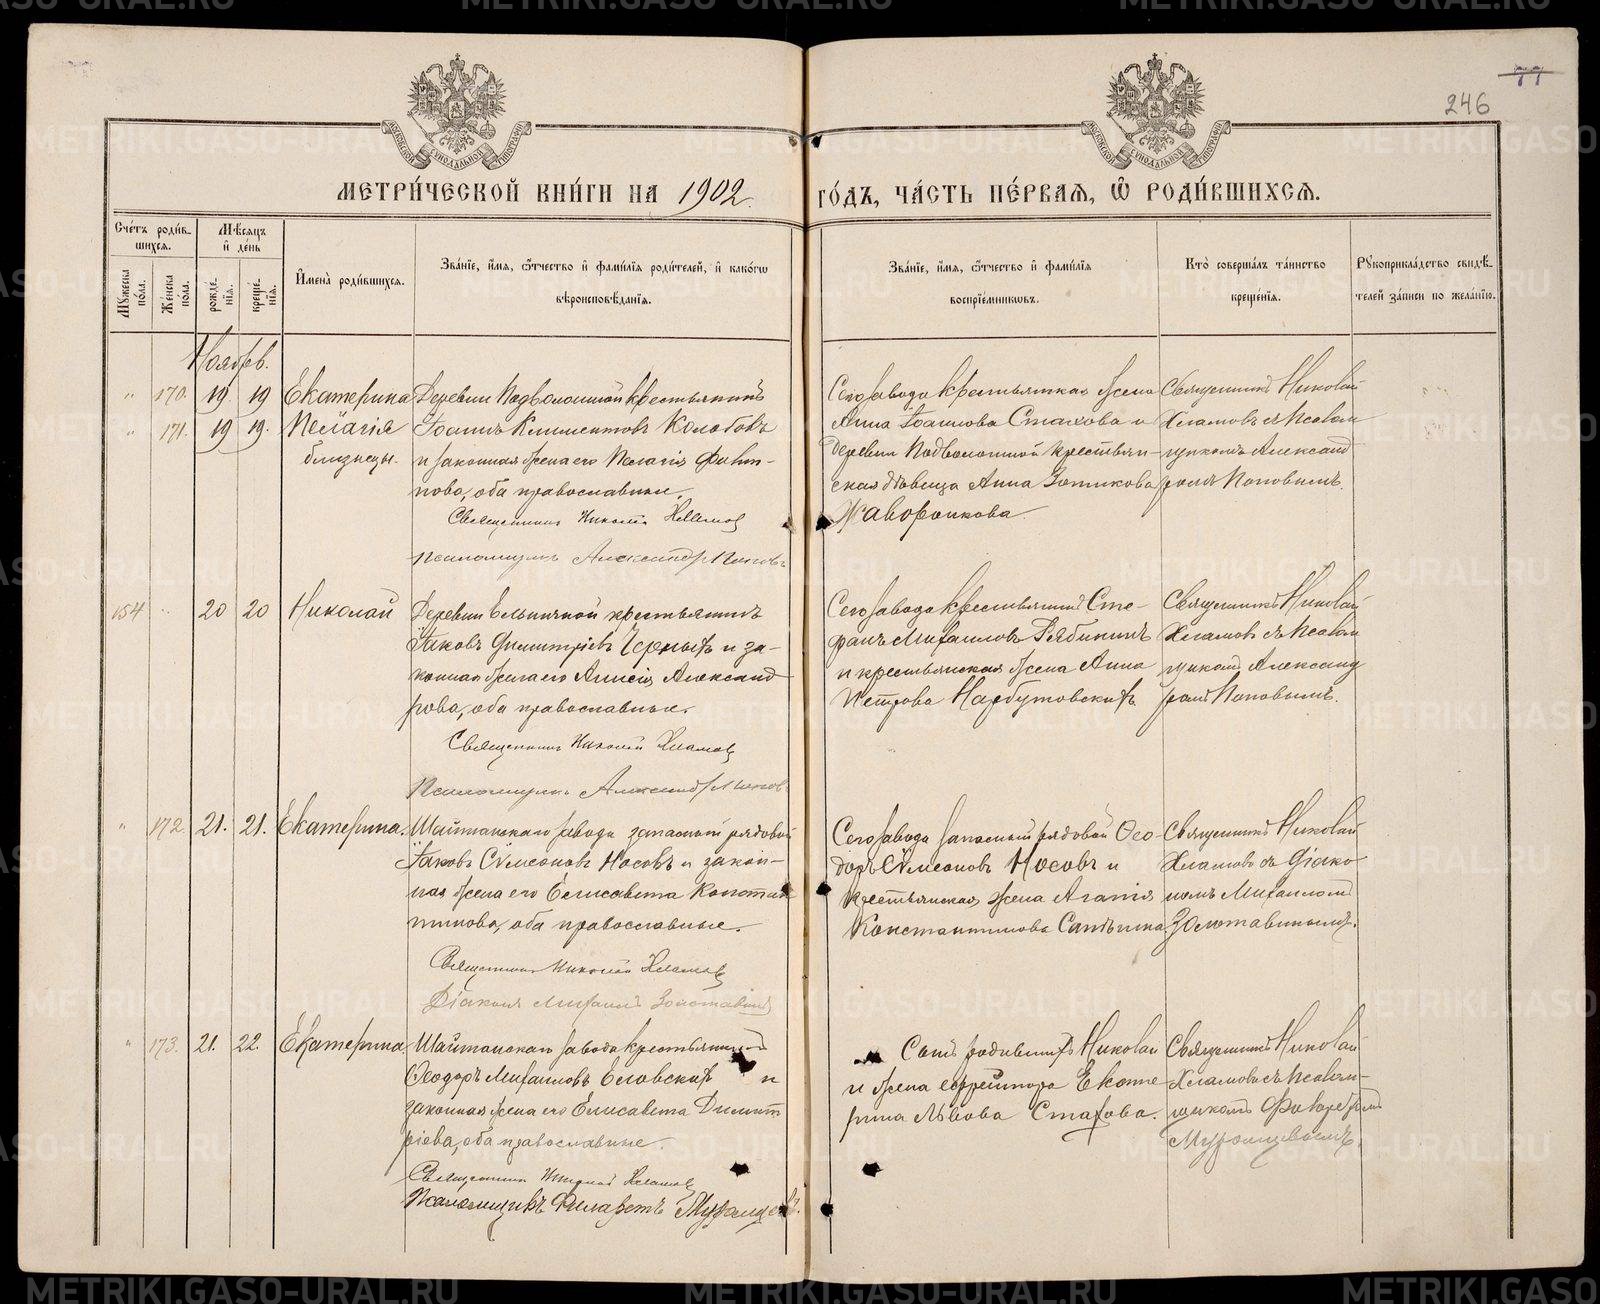 77
246
МЕТРИ́ЧЕСКОЙ КНИ́ГИ НА 1902 ГО́ДЪ, ЧА́СТЬ ПЕ́РВАЯ, Ѽ РОДИ́ВШИХСЯ.
Сче́тъ роди́в-
шихся.
Мꙋжеска по́ла.
Же́нска по́ла.
Мѣсяцъ
и҆ де́нь
рожде́-
нїя.
креще́-
нїя.
И҆мена̀ роди́вшихся.
Зва́нїе, и҆́мя, ѻ҆́тчество и҆ фами́лїя роди́телей, и҆ како́гѡ
вѣроисповѣ́данїя.
Зва́нїе, и҆́мя, ѻ҆́тчество и҆ фами́лїя
воспрїе́мникѡвъ.
Кто̀ соверша́лъ та́инство
креще́нїя.
Рꙋкоприкла́дство свидѣ́-
телей за́писи по жела́нїю.
Ноябрь.
" 170. 19 19 Екатерина Деревни Подволошной крестьянинъ
" 171. 19 19. Пелагія Іоаннъ Климентовъ Колобовъ
близнецы. и законная жена его Пелагія Филип-
пова, оба православные.
Священникъ Николай Хламов
Псаломщикъ Александръ Поповъ
Сего завода крестьянская жена
Анна Іоаннова Стахова и
деревни Подволошной крестьян-
ская дѣвица Анна Зотикова
Жаворонкова
Священникъ Николай
Хламовъ съ Псалом
щикомъ Александ
ромъ Поповымъ.
154 " 20 20 Николай Деревни Ельничной крестьянинъ
Іаковъ Димитріевъ Черныхъ и за-
конная жена его Анисія Александ
рова, оба православные.
Священникъ Николай Хламов
Псаломщикъ Александръ Попов
Сего завода крестьянинъ Сте-
фанъ Михаиловъ Рябининъ
и крестьянская жена Анна
Петрова Нарбутовскихъ
Священникъ Николай
Хламов съ Псалом
щикомъ Александ
ромъ Поповымъ.
" 172 21. 21. Екатерина. Шайтанскаго завода запасный рядовой
Іаковъ Сѵмеоновъ Носовъ и закон-
ная жена его Елисавета Констан
тинова, оба православные.
Священникъ Николай Хламов
Діаконъ Михаилъ Золотавинъ
Сего завода запасный рядовой Ѳео-
доръ Сѵмеоновъ Носовъ и
крестьянская жена Агапія
Константинова Сапѣгина
Священникъ Николай
Хламовъ съ Діако
номъ Михаиломъ
Золотавинымъ.
" 173. 21. 22. Екатерина. Шайтанскаго завода крестьянинъ
Ѳеодоръ Михаиловъ Еловскихъ и
законная жена его Елисавета Димит
ріева, оба православные.
Священникъ Николай Хламов
Псаломщикъ Филаретъ Мурзинцевъ.
Сынъ родившихъ Николай
и жена ефрейтора Екате
рина Львова Стахова.
Священникъ Николай
Хламовъ съ Псалом-
щикомъ Филаретомъ
METRIKI.GASO-URAL.RU